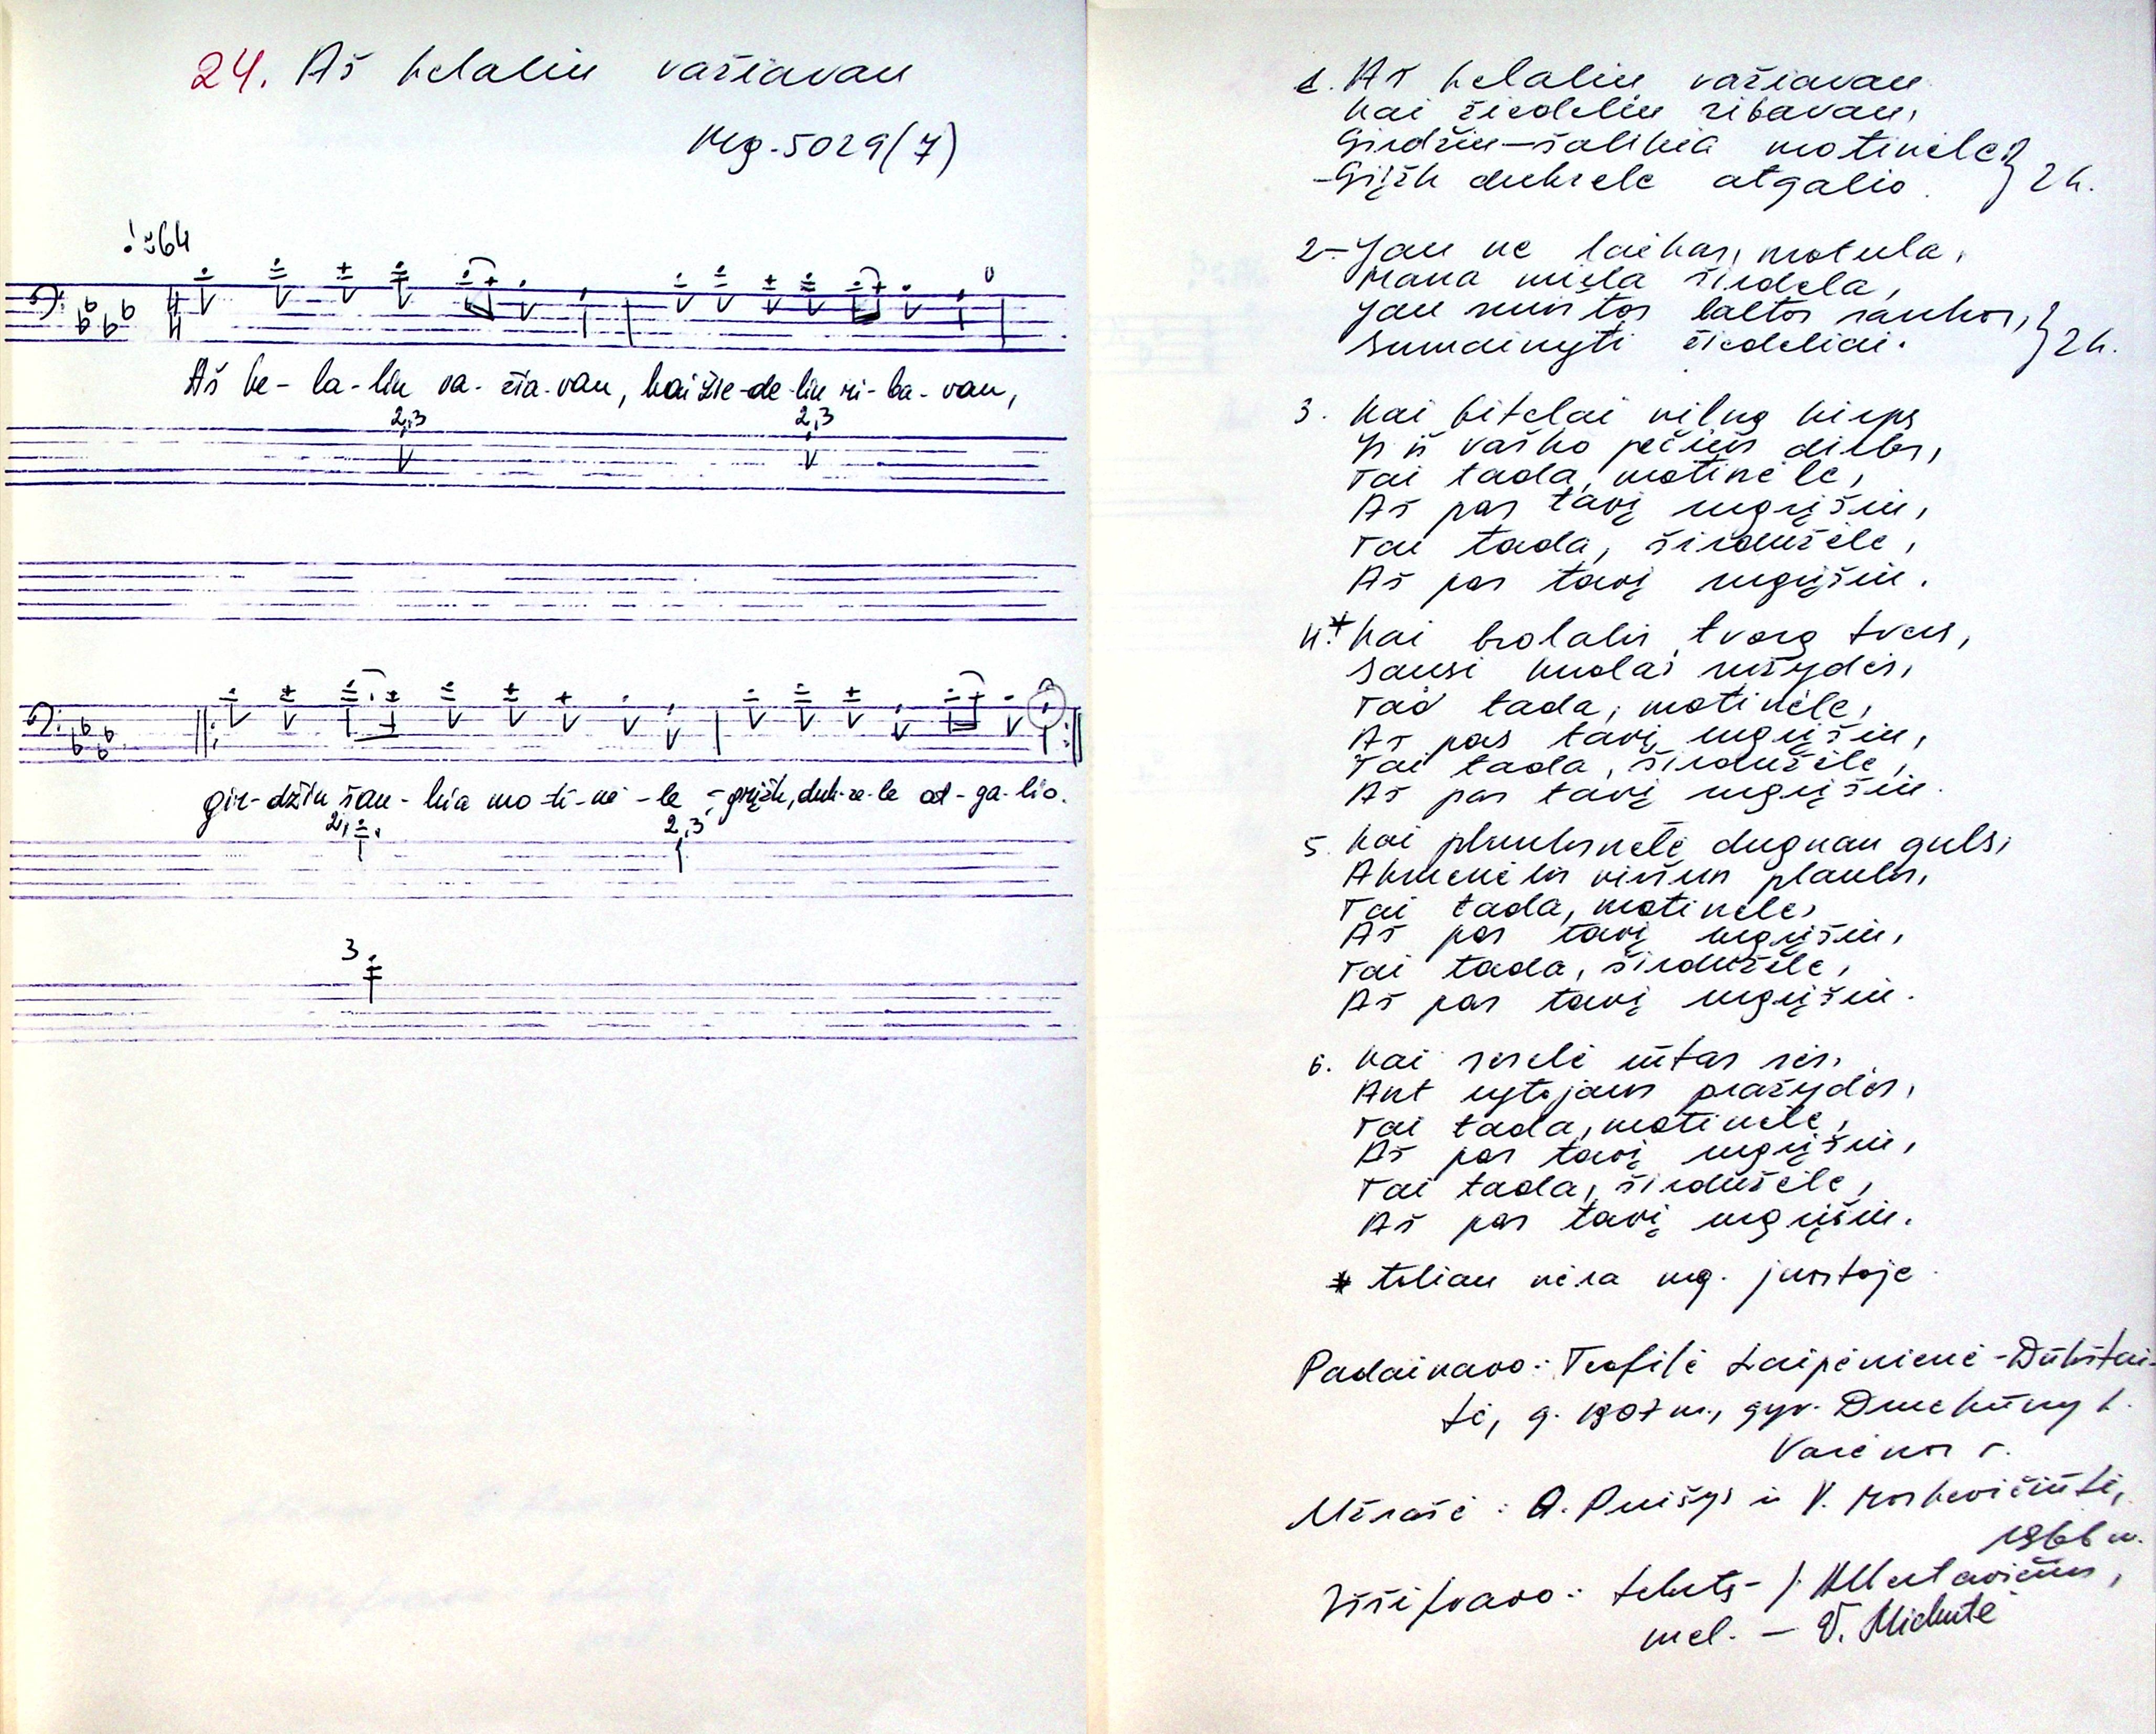 24. Aš kelaliu važiavau
Mg. 5029(7)
♩≈64
Aš ke-la-liu va-žia-vau, kai žie-de-liu ri-ba-vau,
2,3 2,3
gir-džiu šau-kia mo-ti-nė-le - grįžk, duk-re-le at-ga-lio.
2, 2,3
3.
1. Aš kelaliu važiavau
Kai žiedeliu ribavau,
Girdžiu-šaukia motinėle: } 2k.
-Grįžk dukrele atgalio.
2-Jau ne laikas, motula,
Mana miela širdela,
Jau suristos baltos rankos, } 2k.
Sumainyti žiedeliai.
3. Kai bitelai vilną kirps
Ir iš vaško pečius dirbs,
Tai tada, motinėle,
Aš pas tavį sugrįšiu,
Tai tada, širdužėle,
Aš pas tavį sugrįšiu.
4.* Kai brolalis tvorą tvers,
Sausi kuolai sužydės,
Tai tada, motinėle,
Aš pas tavį sugrįšiu,
Tai tada, širdužėle,
Aš pas tavį sugrįšiu.
5. Kai plunksnelė dugnan guls,
Akmenėlis viršun plauks,
Tai tada, motinėle,
Aš pas tavį sugrįšiu,
Tai tada, širdužėle,
Aš pas tavį sugrįšiu.
6. Kai seselė rūtas sės,
Ant rytojaus pražydės,
Tai tada, motinėle,
Aš pas tavį sugrįšiu,
Tai tada, širdužėle,
Aš pas tavį sugrįšiu.
* toliau nėra mg. juostoje
Padainavo: Teofilė Laipėnienė-Dūkštai-
tė, g. 1907 m., gyv. k.
Varėnos r.
Užrašė: A. Puišys ir V. Morkevičiūtė,
1966 m.
Iššifravo: tekstą- J. Albertavičius,
mel. -